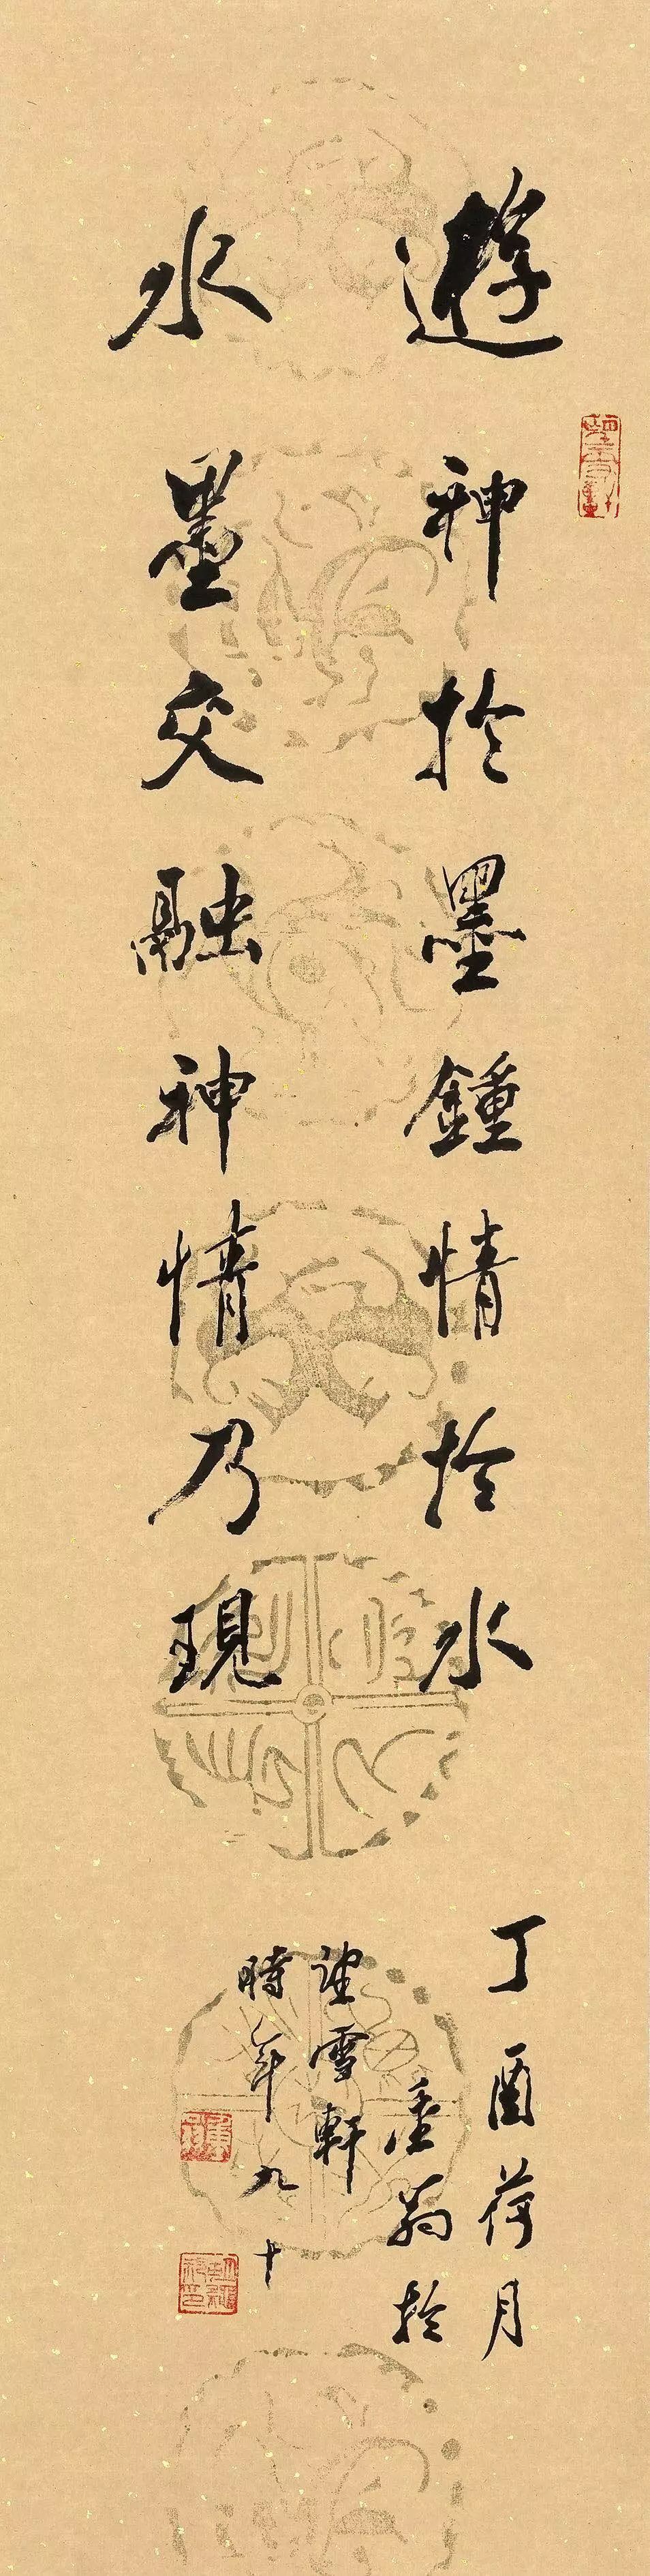 遊神於墨鍾情於水
水墨交融神情乃現
丁酉荷月
垂翁於
望雪軒
時年九十